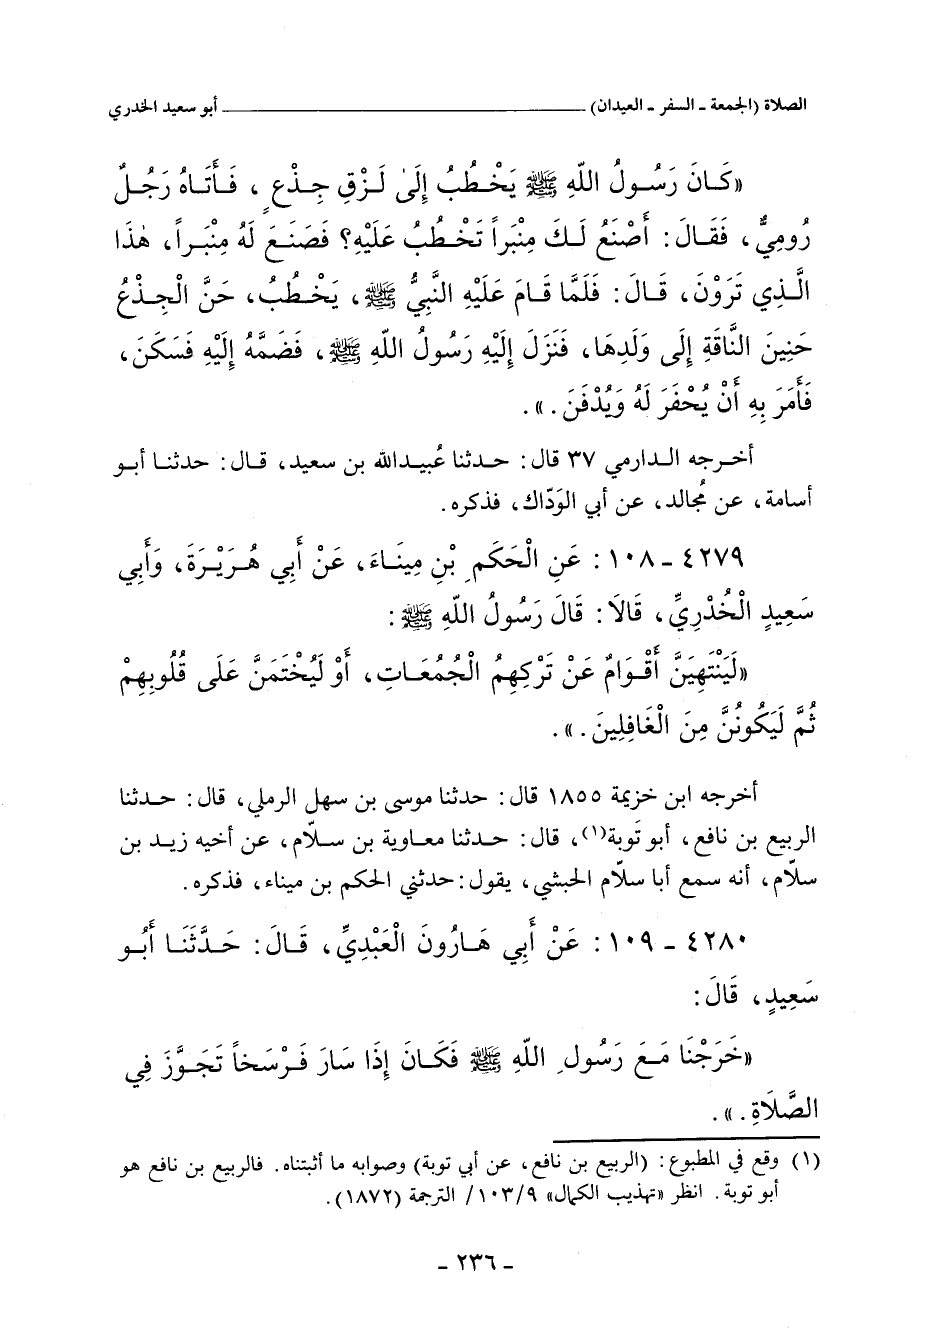 الصلاة (الجمعة ـ السفر ـ العيدان) ـــــــــــــــــــــــــــــــــ أبو سعيد الخدري
«كَـانَ رَسُـولُ اللّهِ ﷺ يَخْـطُبُ إِلَىٰ لَـزْقِ جِـذْعٍ ، فَـأَتَـاهُ رَجُـلٌ
رُومِيٌّ، فَقَالَ: أَصْنَعُ لَـكَ مِنْبَراً تَخْـطُبُ عَلَيْهِ؟ فَصَنَـعَ لَهُ مِنْبَـراً، هٰذَا
الَّـذِي تَرَوْنَ، قَـالَ: فَلَمَّا قَـامَ عَلَيْهِ النَّبِيُّ ﷺ، يَخْـطُبُ، حَنَّ الْجِذْعُ
حَنِينَ النَّاقَةِ إِلَى وَلَدِهَا، فَنَزَلَ إِلَيْهِ رَسُولُ اللّهِ ﷺ، فَضَمَّهُ إِلَيْهِ فَسَكَنَ،
فَأَمَرَ بِهِ أَنْ يُحْفَرَ لَهُ وَيُدْفَنَ.».
أخـرجه الـدارمي ٣٧ قال: حـدثنا عُبيـدالله بن سعيد، قـال: حدثنـا أبـو
أسامة، عن مُجالد، عن أبي الوَدّاك، فذكره.
٤٢٧٩ ـ ١٠٨: عَنِ الْحَكَمِ بْنِ مِينَـاءَ، عَنْ أَبِي هُـرَيْـرَةَ، وَأَبِي
سَعِيدٍ الْخُدْرِيِّ، قَالَا: قَالَ رَسُولُ اللّهِ ﷺ:
«لَيَنْتَهِيَنَّ أَقْـوَامٌ عَنْ تَرْكِهِمُ الْجُمُعَـاتِ، أَوْ لَيُخْتَمَنَّ عَلَى قُلُوبِهِمْ
ثُمَّ لَيَكُونُنَّ مِنَ الْغَافِلِينَ.».
أخرجه ابن خزيمة ١٨٥٥ قال: حدثنا موسى بن سهل الرملي، قال: حـدثنا
الربيع بن نافع، أبو تَوبة(١)، قال: حـدثنا معـاوية بن سـلّام، عن أخيه زيـد بن
سلّام، أنه سمع أبا سلّام الحبشي، يقول: حدثني الحكم بن ميناء، فذكره.
٤٢٨٠ ـ ١٠٩: عَنْ أَبِي هَـارُونَ الْعَبْدِيِّ، قَـالَ: حَـدَّثَنَـا أَبُـو
سَعِيدٍ، قَالَ:
«خَرَجْنَا مَـعَ رَسُولِ اللّهِ ﷺ فَكَـانَ إِذَا سَارَ فَـرْسَخاً تَجَوَّزَ فِي
الصَّلَاةِ.».
(١) وقع في المطبوع: (الربيع بن نافع، عن أبي توبة) وصوابه ما أثبتناه. فالربيع بن نافع هو
أبو توبة. انظر «تهذيب الكمال» ١٠٣/٩/ الترجمة (١٨٧٢).
ـ ٢٣٦ ـ